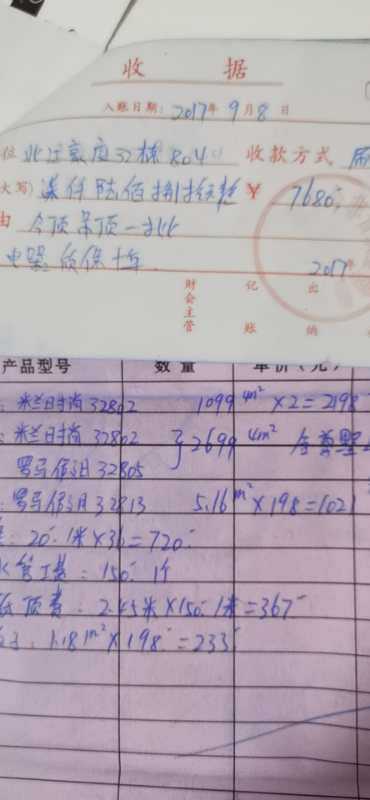 收 据
入账日期: 2017年 9月 8日
位 北江豪庭32栋804 收款方式
大写) 柒仟陆佰捌拾 ¥ 7680
由 今顶吊顶一批
电器质保十年
2017年
财会主管 记账 出纳
产品型号 数量 单价(元)
米兰时尚32802 1099 4m² ×2=2198
米兰时尚32802 } 2699 4m²
罗马假日32805
罗马假日32813 5.16m²×198=1021
20-1米×36=720
管工费: 150-1个
低顶费: 2.45米×150-1米=367
1.181m²×198=233